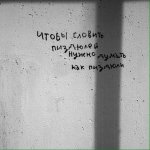 чтобы словить
пизюлей
нужно думать
как пизюли